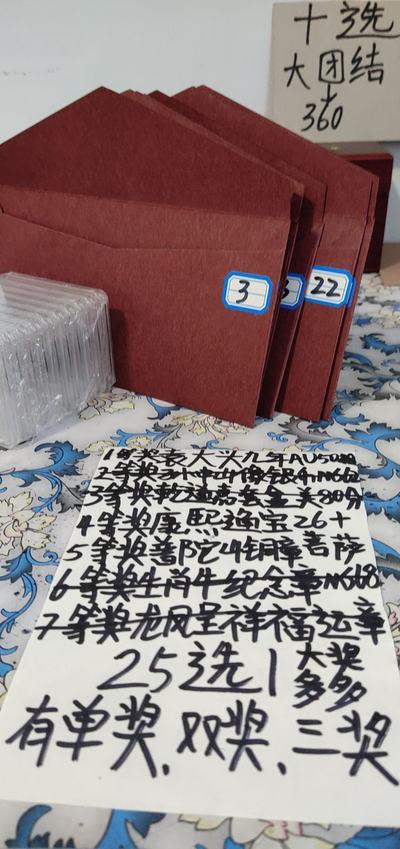 十选
大团结
360
3
22
1等奖袁大头九年AU50
2等奖孙中山像
3等奖乾隆 美80分
4等奖康熙通宝26+
5等奖普陀山铜章菩萨
6等奖生肖牛纪念章MS68
7等奖龙凤呈祥福运章
25选1 大奖
多多
有单奖,双奖,三奖